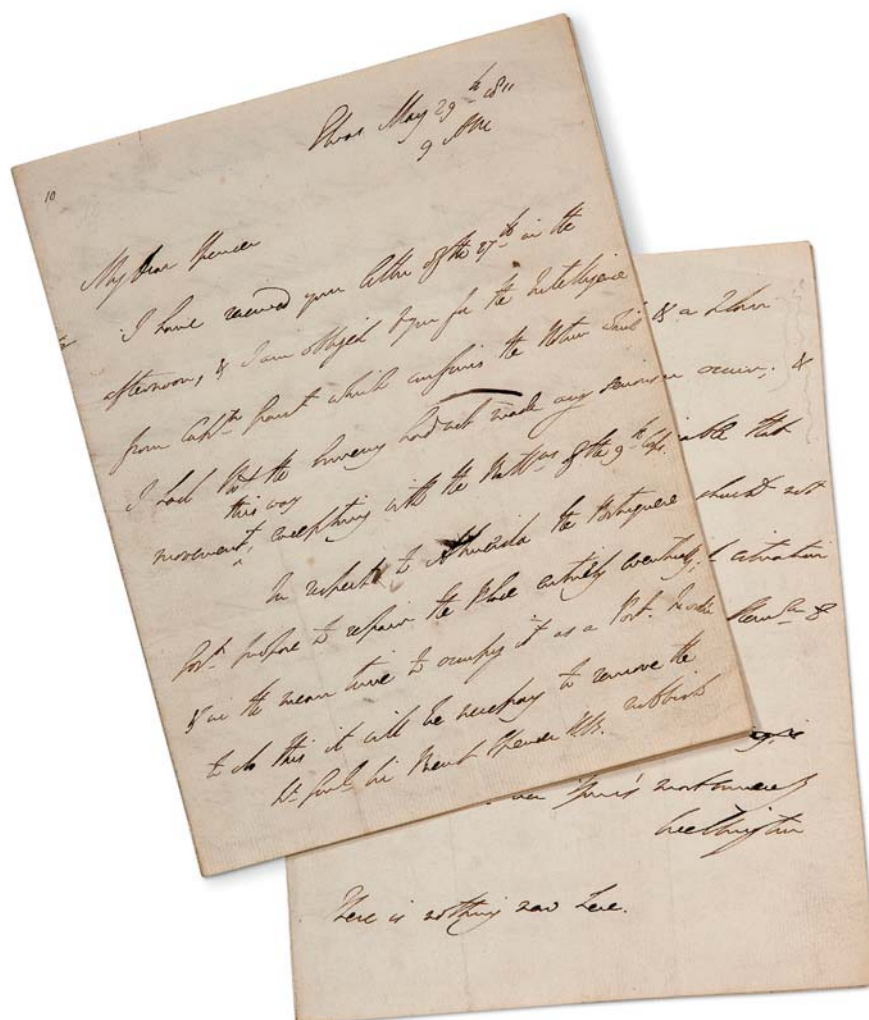 10
Elvas May 29th 1811
9
My Dear Spencer
I have received your letter of the 27th in the
afternoon, & I am obliged to you for the Intelligence
from Captn Grant which confirms the Notion
I had that the Enemy had not made any
this way
movement, excepting with the Battns of the 9th Corps.
In respect to Almeida the Portuguese
Govt propose to repair the Place entirely eventually;
& in the mean time to occupy it as a Post. In order
to do this it will be necessary to remove the
Lt Genl Sir Brent Spencer KB. rubbish
& a
occur; &
able that
should not
situation
&
Yours most sincerely
Wellington
There is nothing new here.